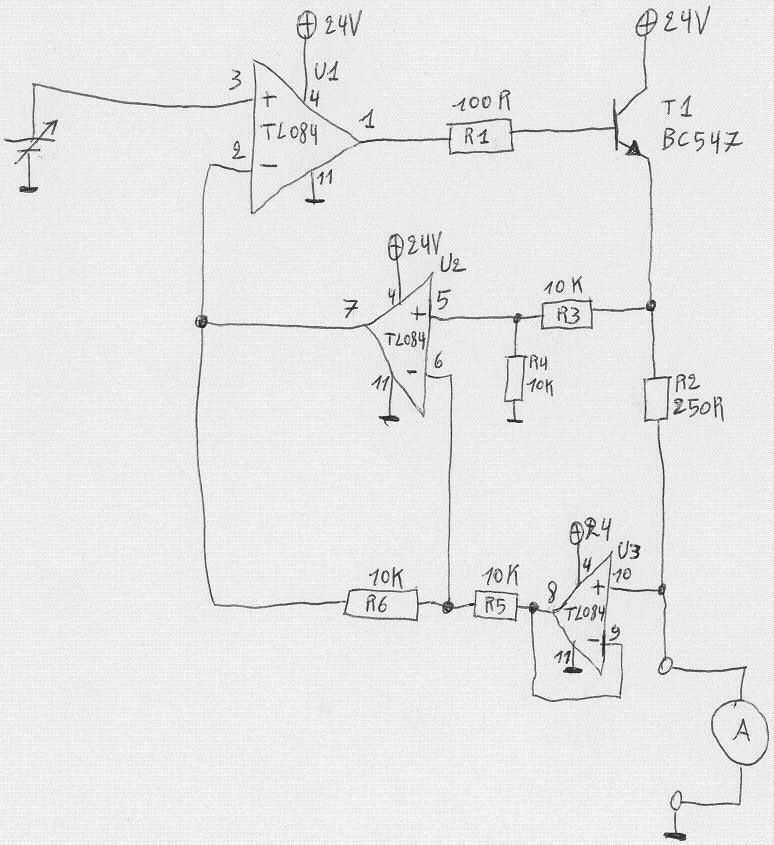 24V
24V
3
+
U1
4
TL084
1
2
-
11
100R
R1
T1
BC547
24V
U2
4
7
+
5
TL084
-
6
11
10K
R3
R4
10K
R2
250R
24
U3
4
+
10
8
TL084
-
9
11
10K
R6
10K
R5
A